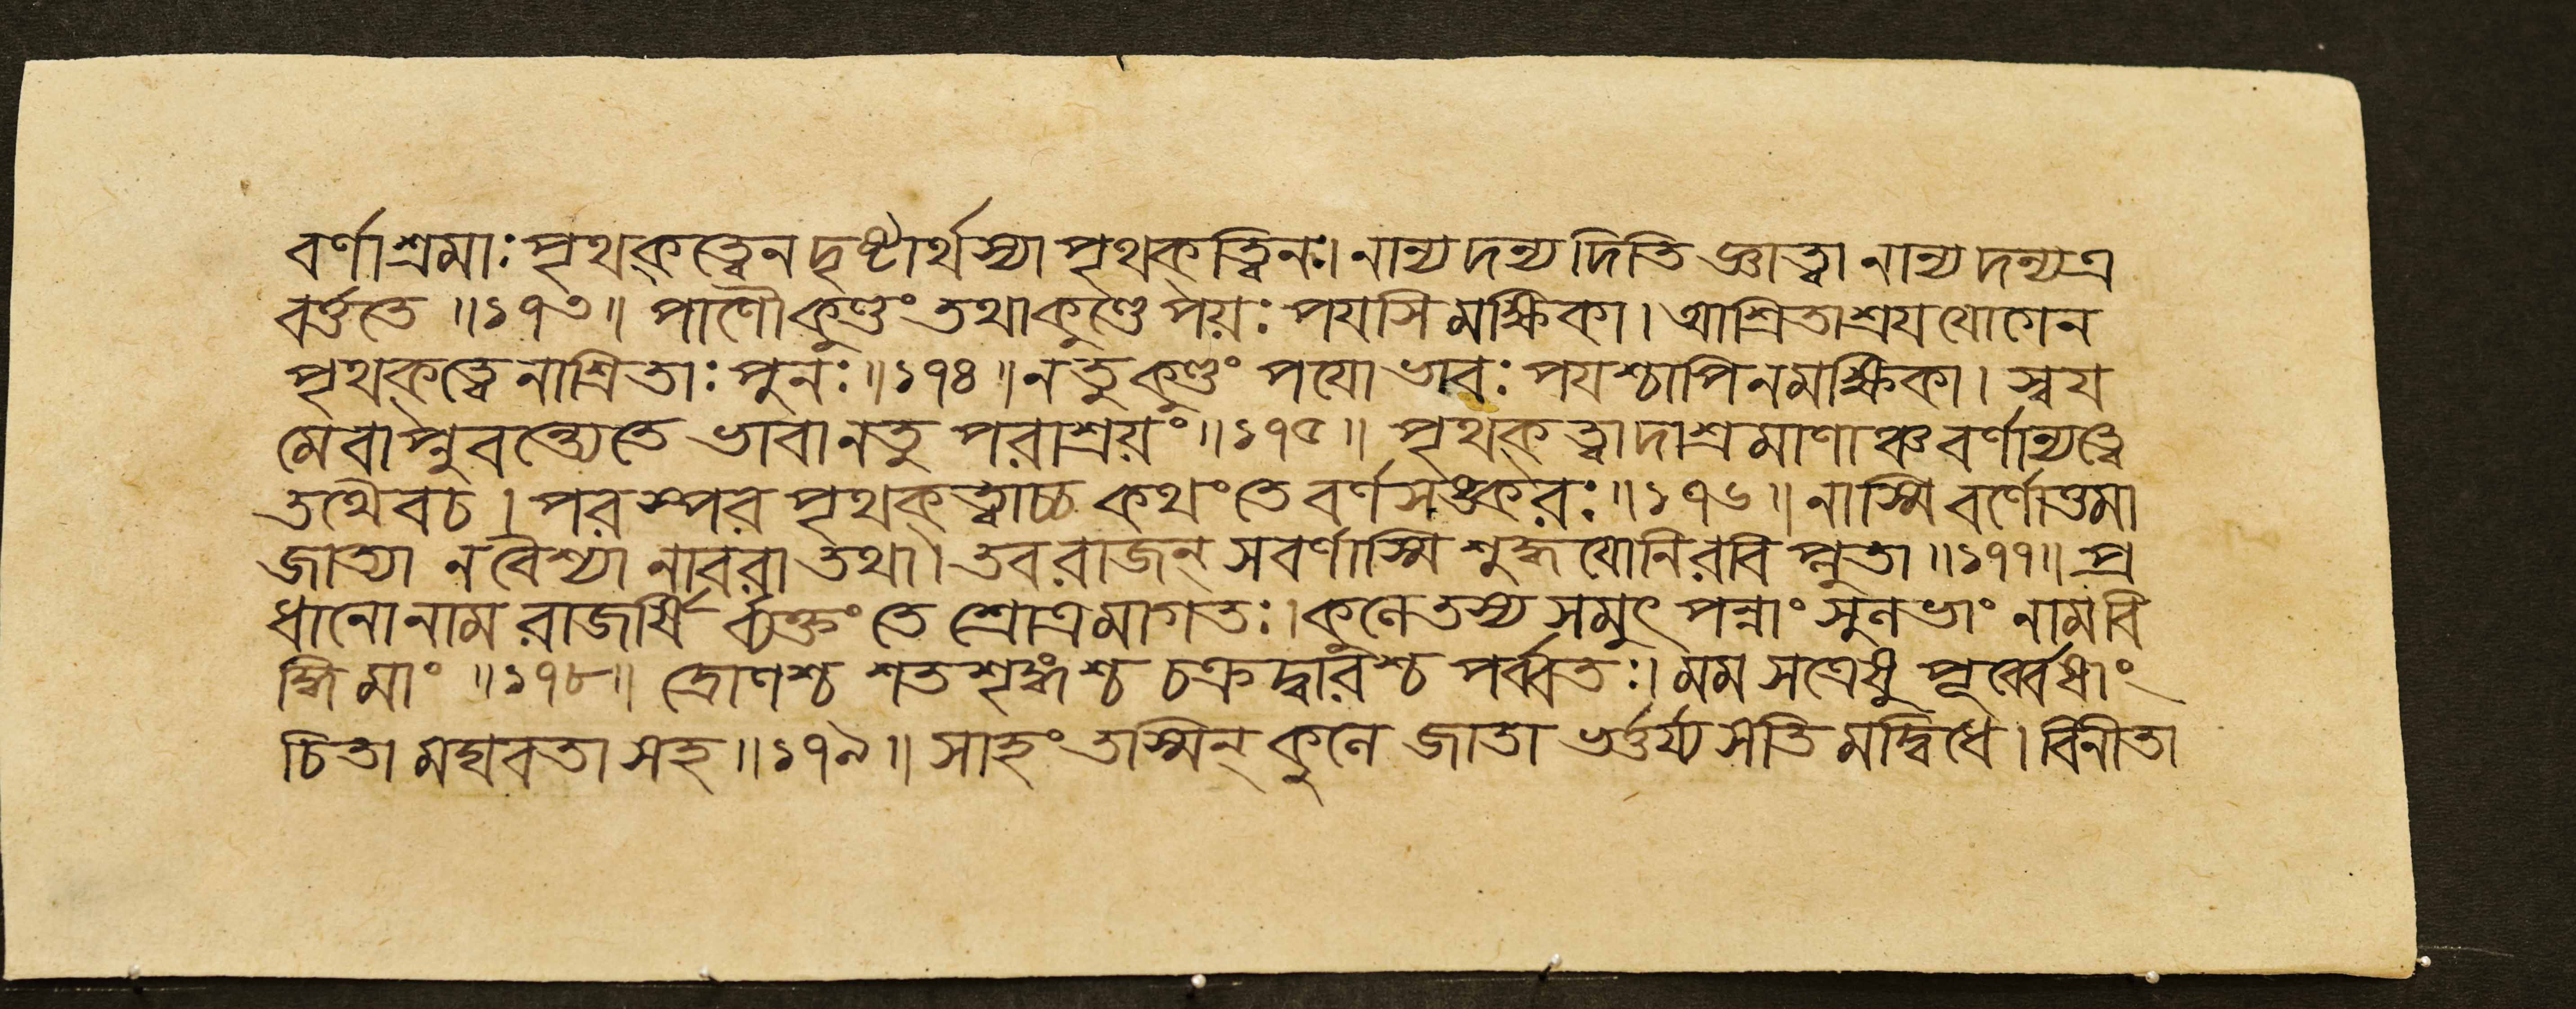 বর্ণাশ্রমাঃ পৃথক্ত্বেন দৃষ্টার্থস্যাপৃথক্ত্বিনঃ। নান্যদন্যদিতি জ্ঞাত্বা নান্যদন্যত্র
বর্ত্ততে ॥১৭৩॥ পাণৌ কুণ্ডং তথা কুণ্ডে পয়ঃ পযসি মক্ষিকা। আশ্রিতাশ্রয যোগেন
পৃথক্ত্বেনাশ্রিতাঃ পুনঃ ॥১৭৪॥ ন তু কুণ্ডং পযো ভাবঃ পযশ্চাপি ন মক্ষিকা। স্বয
মেবাপ্নুবন্ত্যেতে ভাবা ন তু পরাশ্রয়ং ॥১৭৫॥ পৃথক্ত্বাদাশ্রমাণাঞ্চ বর্ণান্যত্বে
তথৈবচ। পরস্পর পৃথক্ত্বাচ্চ কথং তে বর্ণসঙ্করঃ ॥১৭৬॥ নাস্মি বর্ণোত্তমা
জাত্যা ন বৈশ্যা নাবরা তথা। তব রাজন্ সবর্ণাস্মি শুদ্ধযোনিরবিপ্লুতা ॥১৭৭॥ প্র
ধানো নাম রাজর্ষির্ব্যক্তং তে শ্রোত্রমাগতঃ। কুলে তস্য সমুৎপন্নাং সুলভাং নাম বি
দ্ধি মাং ॥১৭৮॥ দ্রোণশ্চ শতশৃঙ্গশ্চ চক্রদ্বারশ্চ পর্ব্বতঃ। মম সত্রেষু পূর্ব্বেষাং
চিতা মঘবতা সহ ॥১৭৯॥ সাহং তস্মিন্ কুলে জাতা ভর্ত্তর্য্যসতি মদ্বিধে। বিনীতা